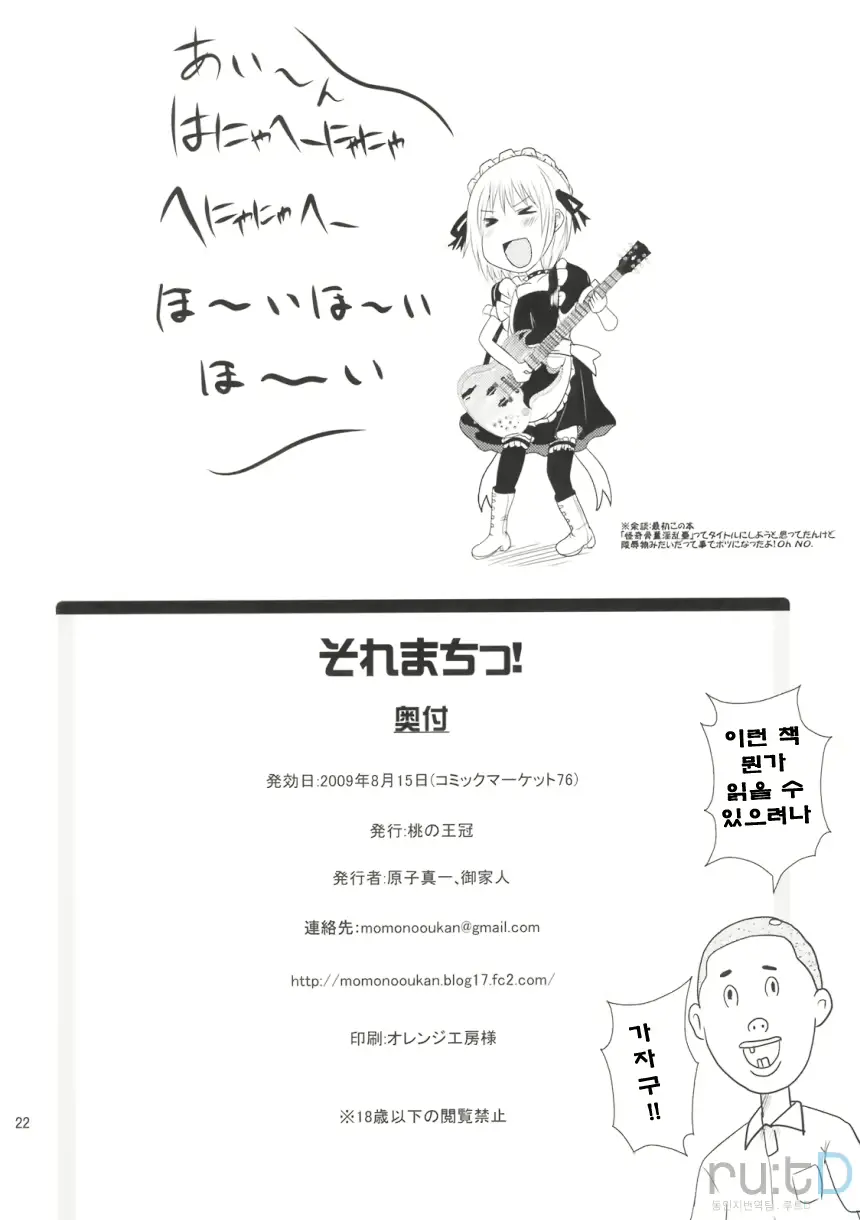 あい〜ん
はにゃへーにゃにゃ
へにゃにゃへー
ほ〜いほ〜い
ほ〜い
※余談:最初この本
って事でボツになったよ!Oh NO.
それまちっ!
奥付
発効日:2009年8月15日(コミックマーケット76)
発行:桃の王冠
発行者:原子真一、御家人
連絡先:momonooukan@gmail.com
http://momonooukan.blog17.fc2.com/
印刷:オレンジ工房様
※18歳以下の閲覧禁止
이런 책
뭔가
읽을 수
있으려나
가
자
구
!!
22
ru:tD
동인지번역팀 . 루트D